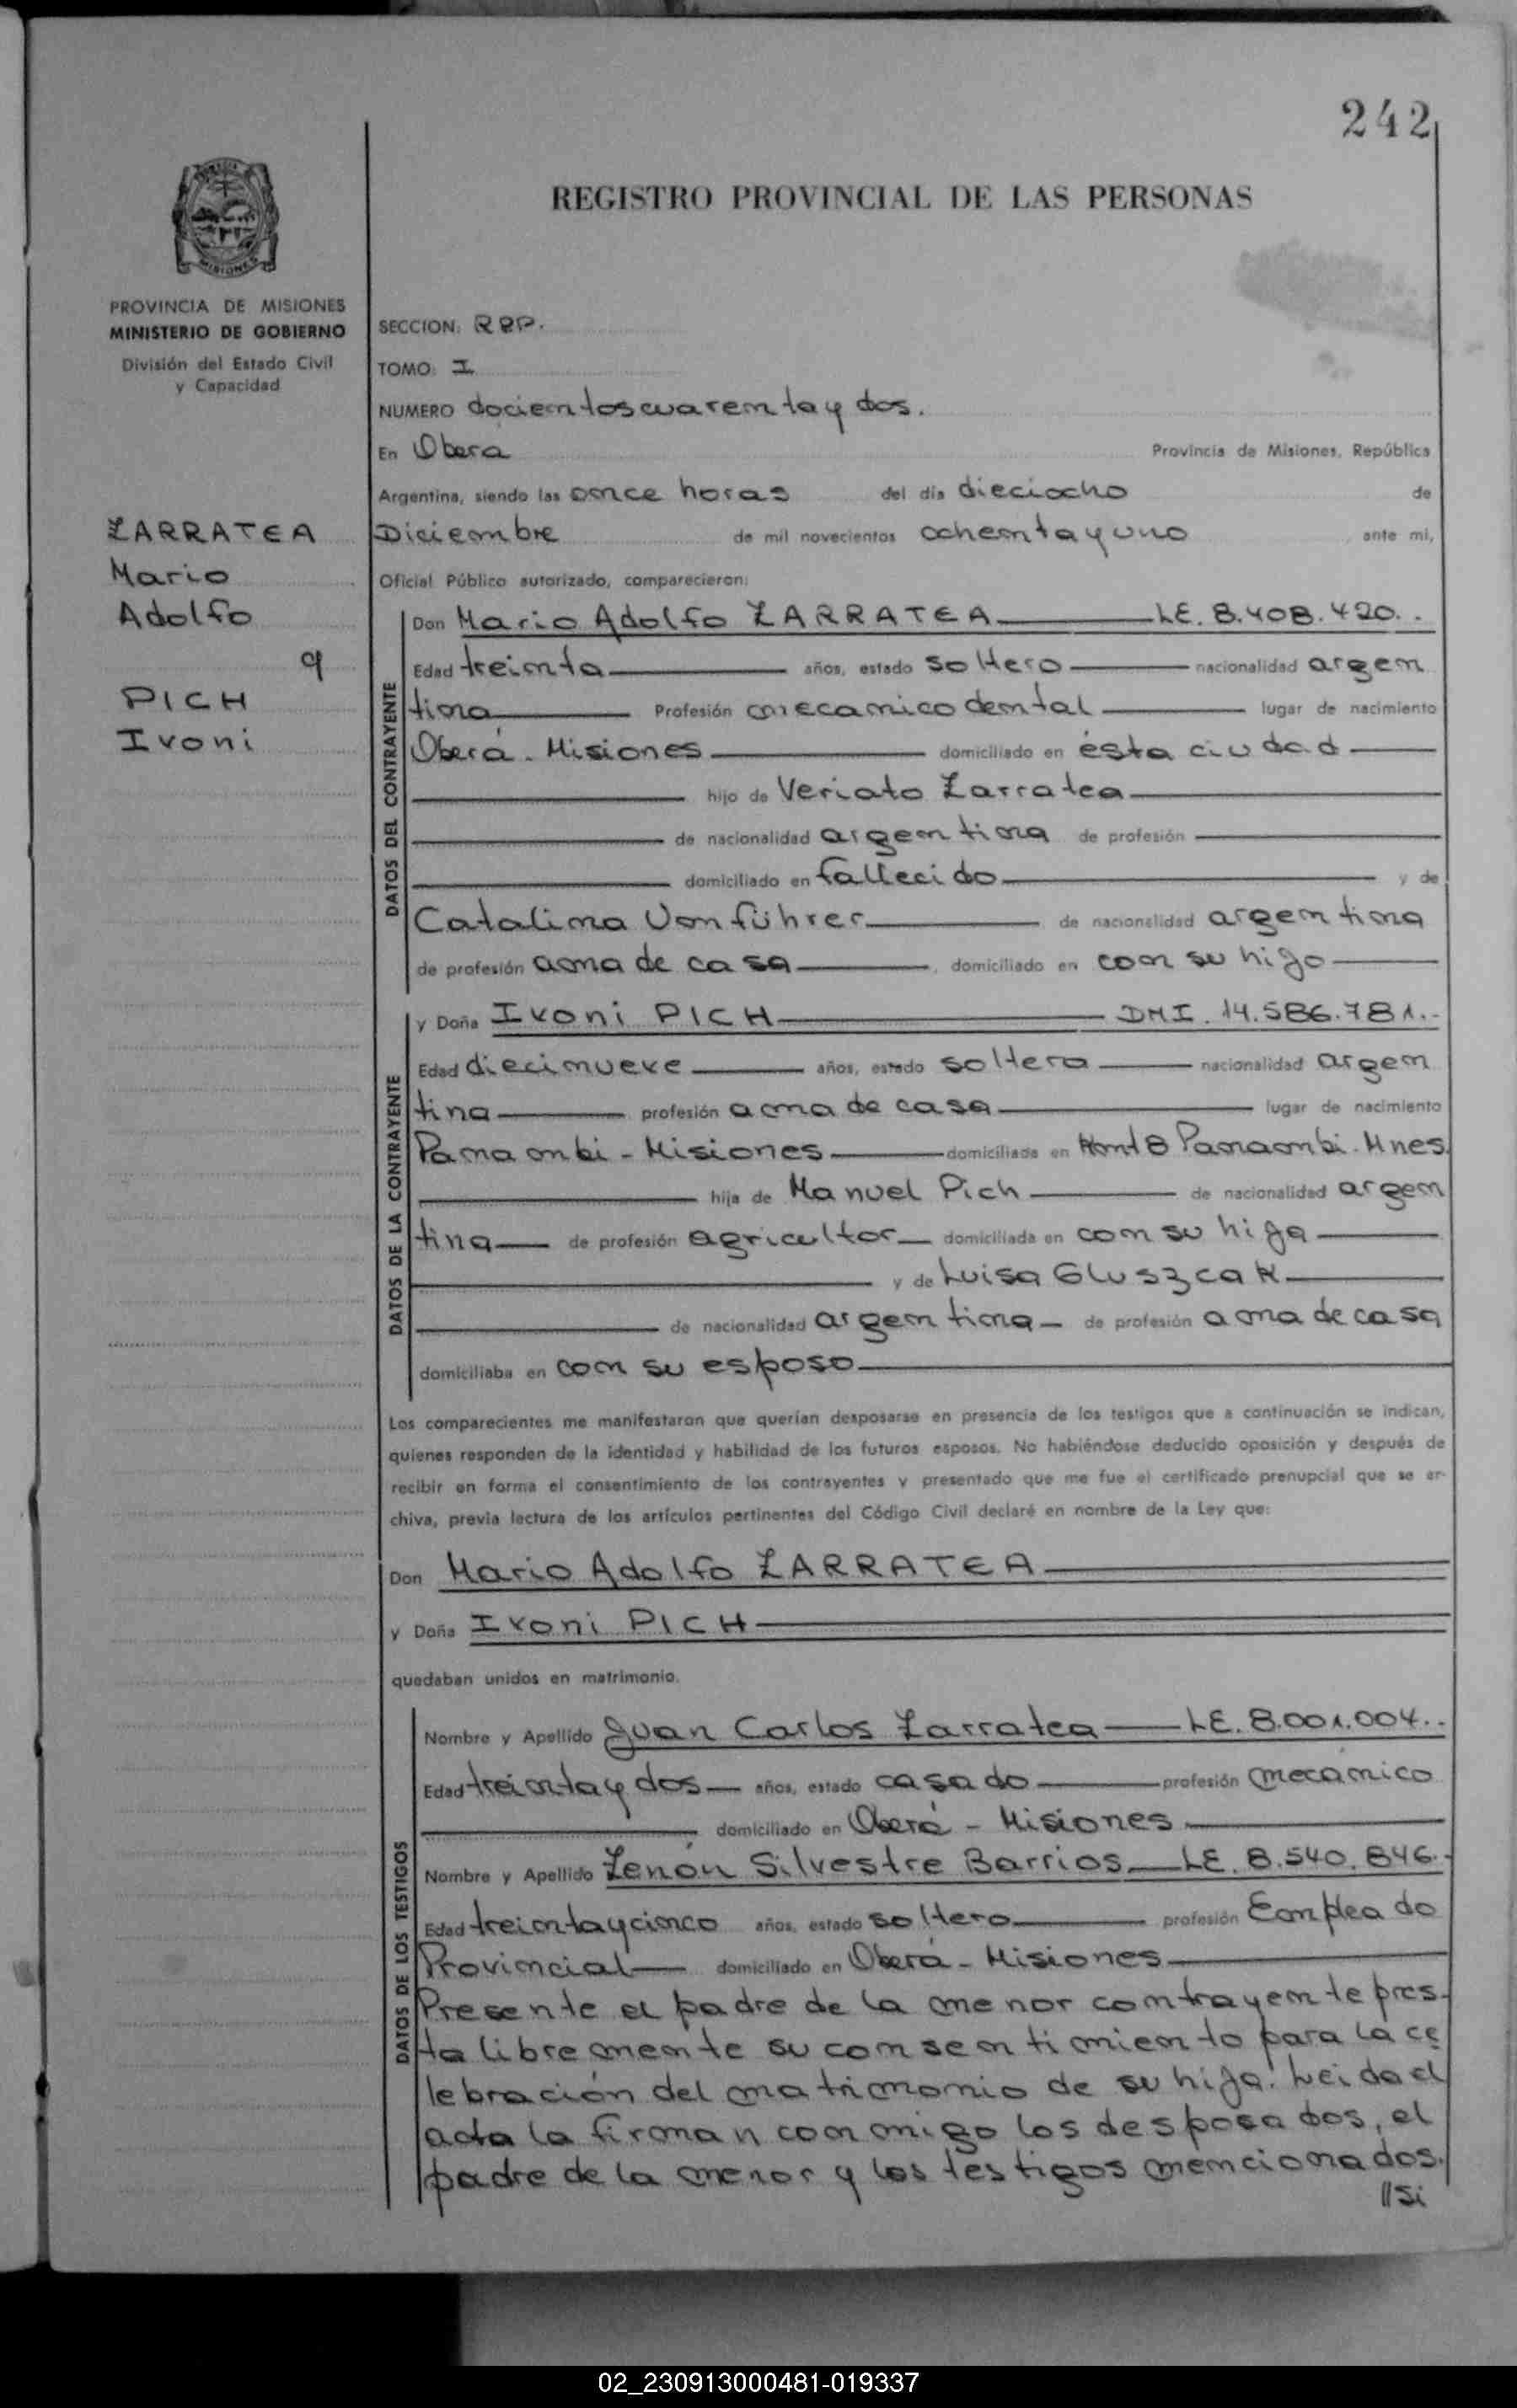 242
REGISTRO PROVINCIAL DE LAS PERSONAS
MISIONES
PROVINCIA DE MISIONES
MINISTERIO DE GOBIERNO
División del Estado Civil
y Capacidad
SECCION: RPP.
TOMO: I
NUMERO docientoscuarentay dos.
En Obera Provincia de Misiones, República
Argentina, siendo las once horas del día dieciocho de
Diciembre de mil novecientos ochentayuno ante mi,
Oficial Público autorizado, comparecieron:
ZARRATEA
Mario
Adolfo
y
PICH
Ivoni
DATOS DEL CONTRAYENTE
Don Mario Adolfo ZARRATEA LE. 8.408.420..
Edad treinta años, estado soltero nacionalidad argen
tina Profesión mecanico dental lugar de nacimiento
Oberá - Misiones domiciliado en ésta ciudad
hijo de Veriato Zarratea
de nacionalidad argentina de profesión
domiciliado en fallecido y de
Catalina Von führer de nacionalidad argentina
de profesión ama de casa, domiciliado en con su hijo
DATOS DE LA CONTRAYENTE
y Doña Ivoni PICH DNI. 14.586.781.-
Edad diecinueve años, estado soltera nacionalidad argen
tina profesión ama de casa lugar de nacimiento
Panambi - Misiones domiciliada en 8 Panambi - Mnes.
hija de Manuel Pich de nacionalidad argen
tina de profesión agricultor domiciliada en con su hija
y de Luisa Gluszcak
de nacionalidad argentina de profesión ama de casa
domiciliaba en con su esposo
Los comparecientes me manifestaron que querían desposarse en presencia de los testigos que a continuación se indican,
quienes responden de la identidad y habilidad de los futuros esposos. No habiéndose deducido oposición y después de
recibir en forma el consentimiento de los contrayentes y presentado que me fue el certificado prenupcial que se ar-
chiva, previa lectura de los artículos pertinentes del Código Civil declaré en nombre de la Ley que:
Don Mario Adolfo ZARRATEA
y Doña Ivoni PICH
quedaban unidos en matrimonio.
DATOS DE LOS TESTIGOS
Nombre y Apellido Juan Carlos Zarratea LE. 8.001.004..
Edad treintay dos años, estado casado profesión mecánico
domiciliado en Oberá - Misiones
Nombre y Apellido Zenón Silvestre Barrios LE. 8.540.846.-
Edad treintaycinco años, estado soltero profesión Empleado
Provincial domiciliado en Oberá - Misiones
Presente el padre de la menor contrayente pres-
ta libremente su consentimiento para la ce
lebración del matrimonio de su hija. Leida el
acta la firman conmigo los desposados, el
padre de la menor y los testigos mencionados.
//Si
02_230913000481-019337